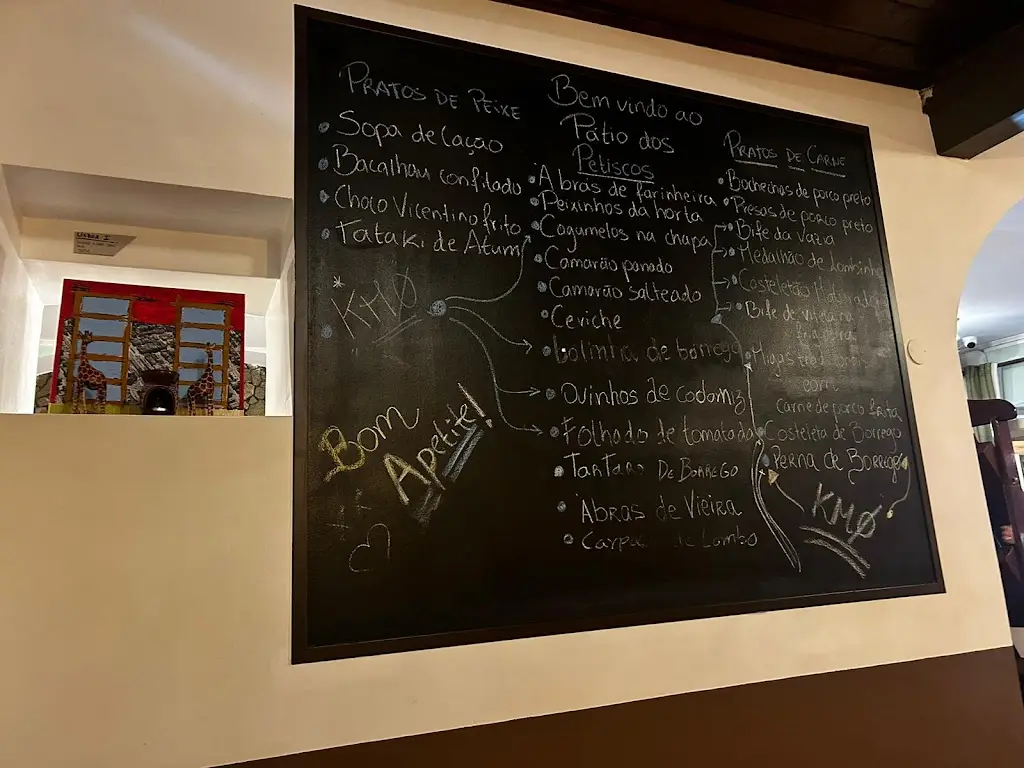 PRATOS DE PEIXE
Sopa de Cação
Bacalhau confitado
Choco Vicentino frito
Tataki de Atum
*KMØ
Bom
Apetite!
Bem vindo ao
Pátio dos
Petiscos
A brás de farinheira
Peixinhos da horta
Cogumelos na chapa
Camarão panado
Camarão salteado
Ceviche
de borrego
Ovinhos de codorniz
Folhado de tomatada
TARTARO DE BORREGO
Abras de Vieira
de Lombo
PRATOS DE CARNE
Bochechas de porco preto
Presas de porco preto
Bife da vazia
Medalhão de
Bife de
com
carne de porco frita
Costeleta de Borrego
PERNA DE Borrego
KMØ